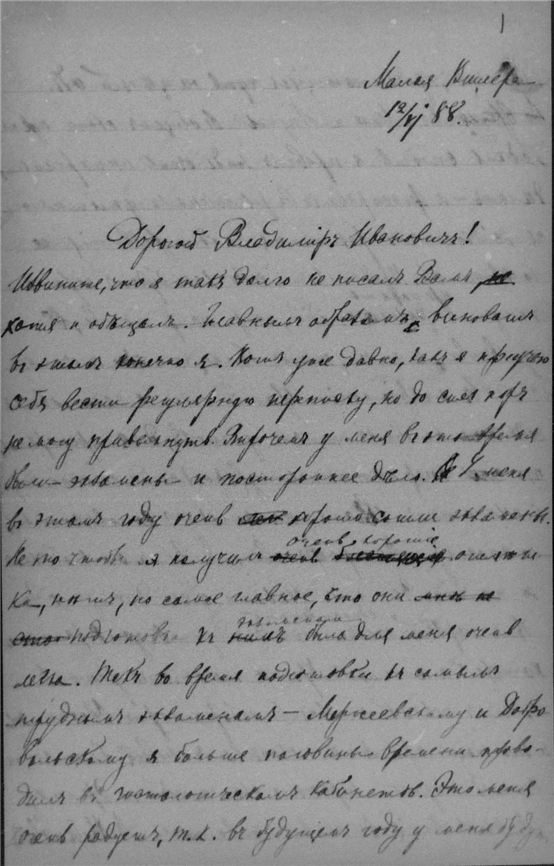 1
Малая Вишера
12/VI 88.
Дорогой Владиміръ Ивановичъ!
Извините, что я такъ долго не писалъ Вамъ, не
хотя и обѣщалъ. Главнымъ образомъ виноватъ
въ этомъ конечно я. Вотъ уже давно, какъ я приучаю
себя вести регулярную переписку, но до сихъ поръ
не могу привыкнуть. Впрочемъ у меня въ это время
были экзамены и постороннее дѣло. У меня
въ этомъ году очень хорошо сошли экзамены.
Не то чтобы я получилъ очень хорошія отмѣт
ки, нѣтъ, но самое главное, что они
подготовка къ нимъ была для меня очень
легка. Такъ во время подготовки къ самымъ
труднымъ экзаменамъ – Мержеевскому и Добро
вольскому я больше половины времени прово
дилъ въ гистологическомъ кабинетѣ. Это меня
очень радуетъ, т. к. въ будущемъ году у меня буд